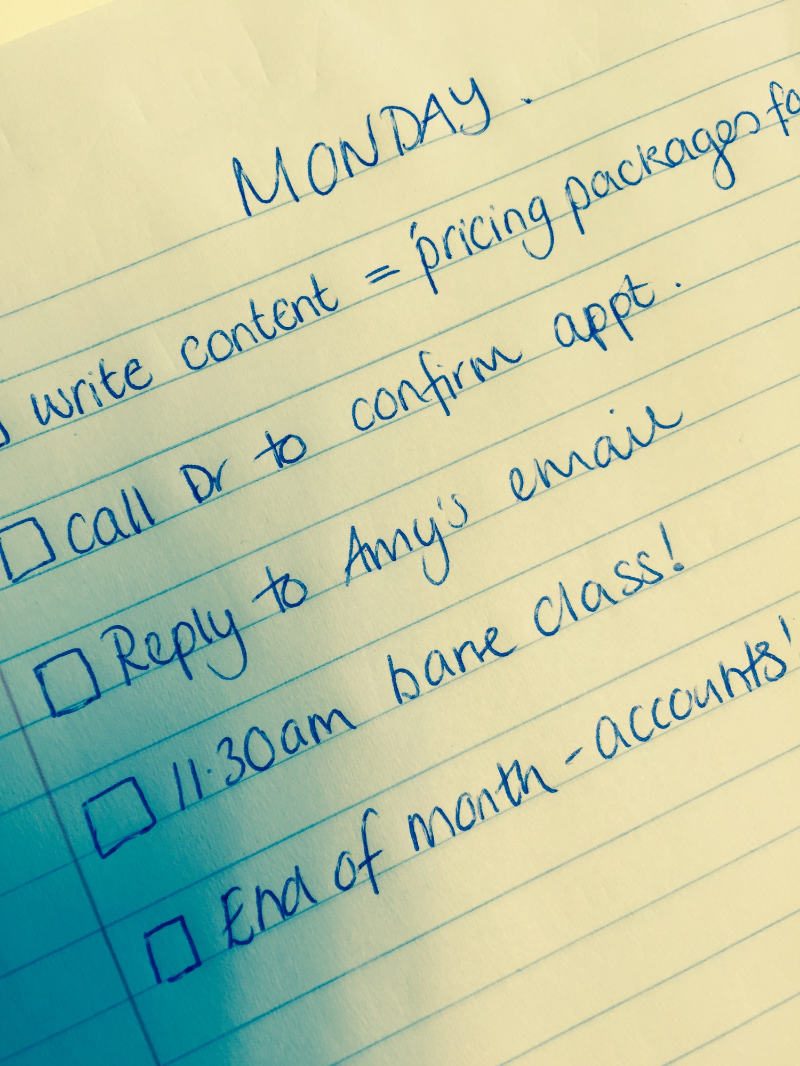 MONDAY.
write content = 'pricing packages fo
call Dr to confirm appt.
Reply to Amy's email
11.30am barre class!
End of month - accounts'